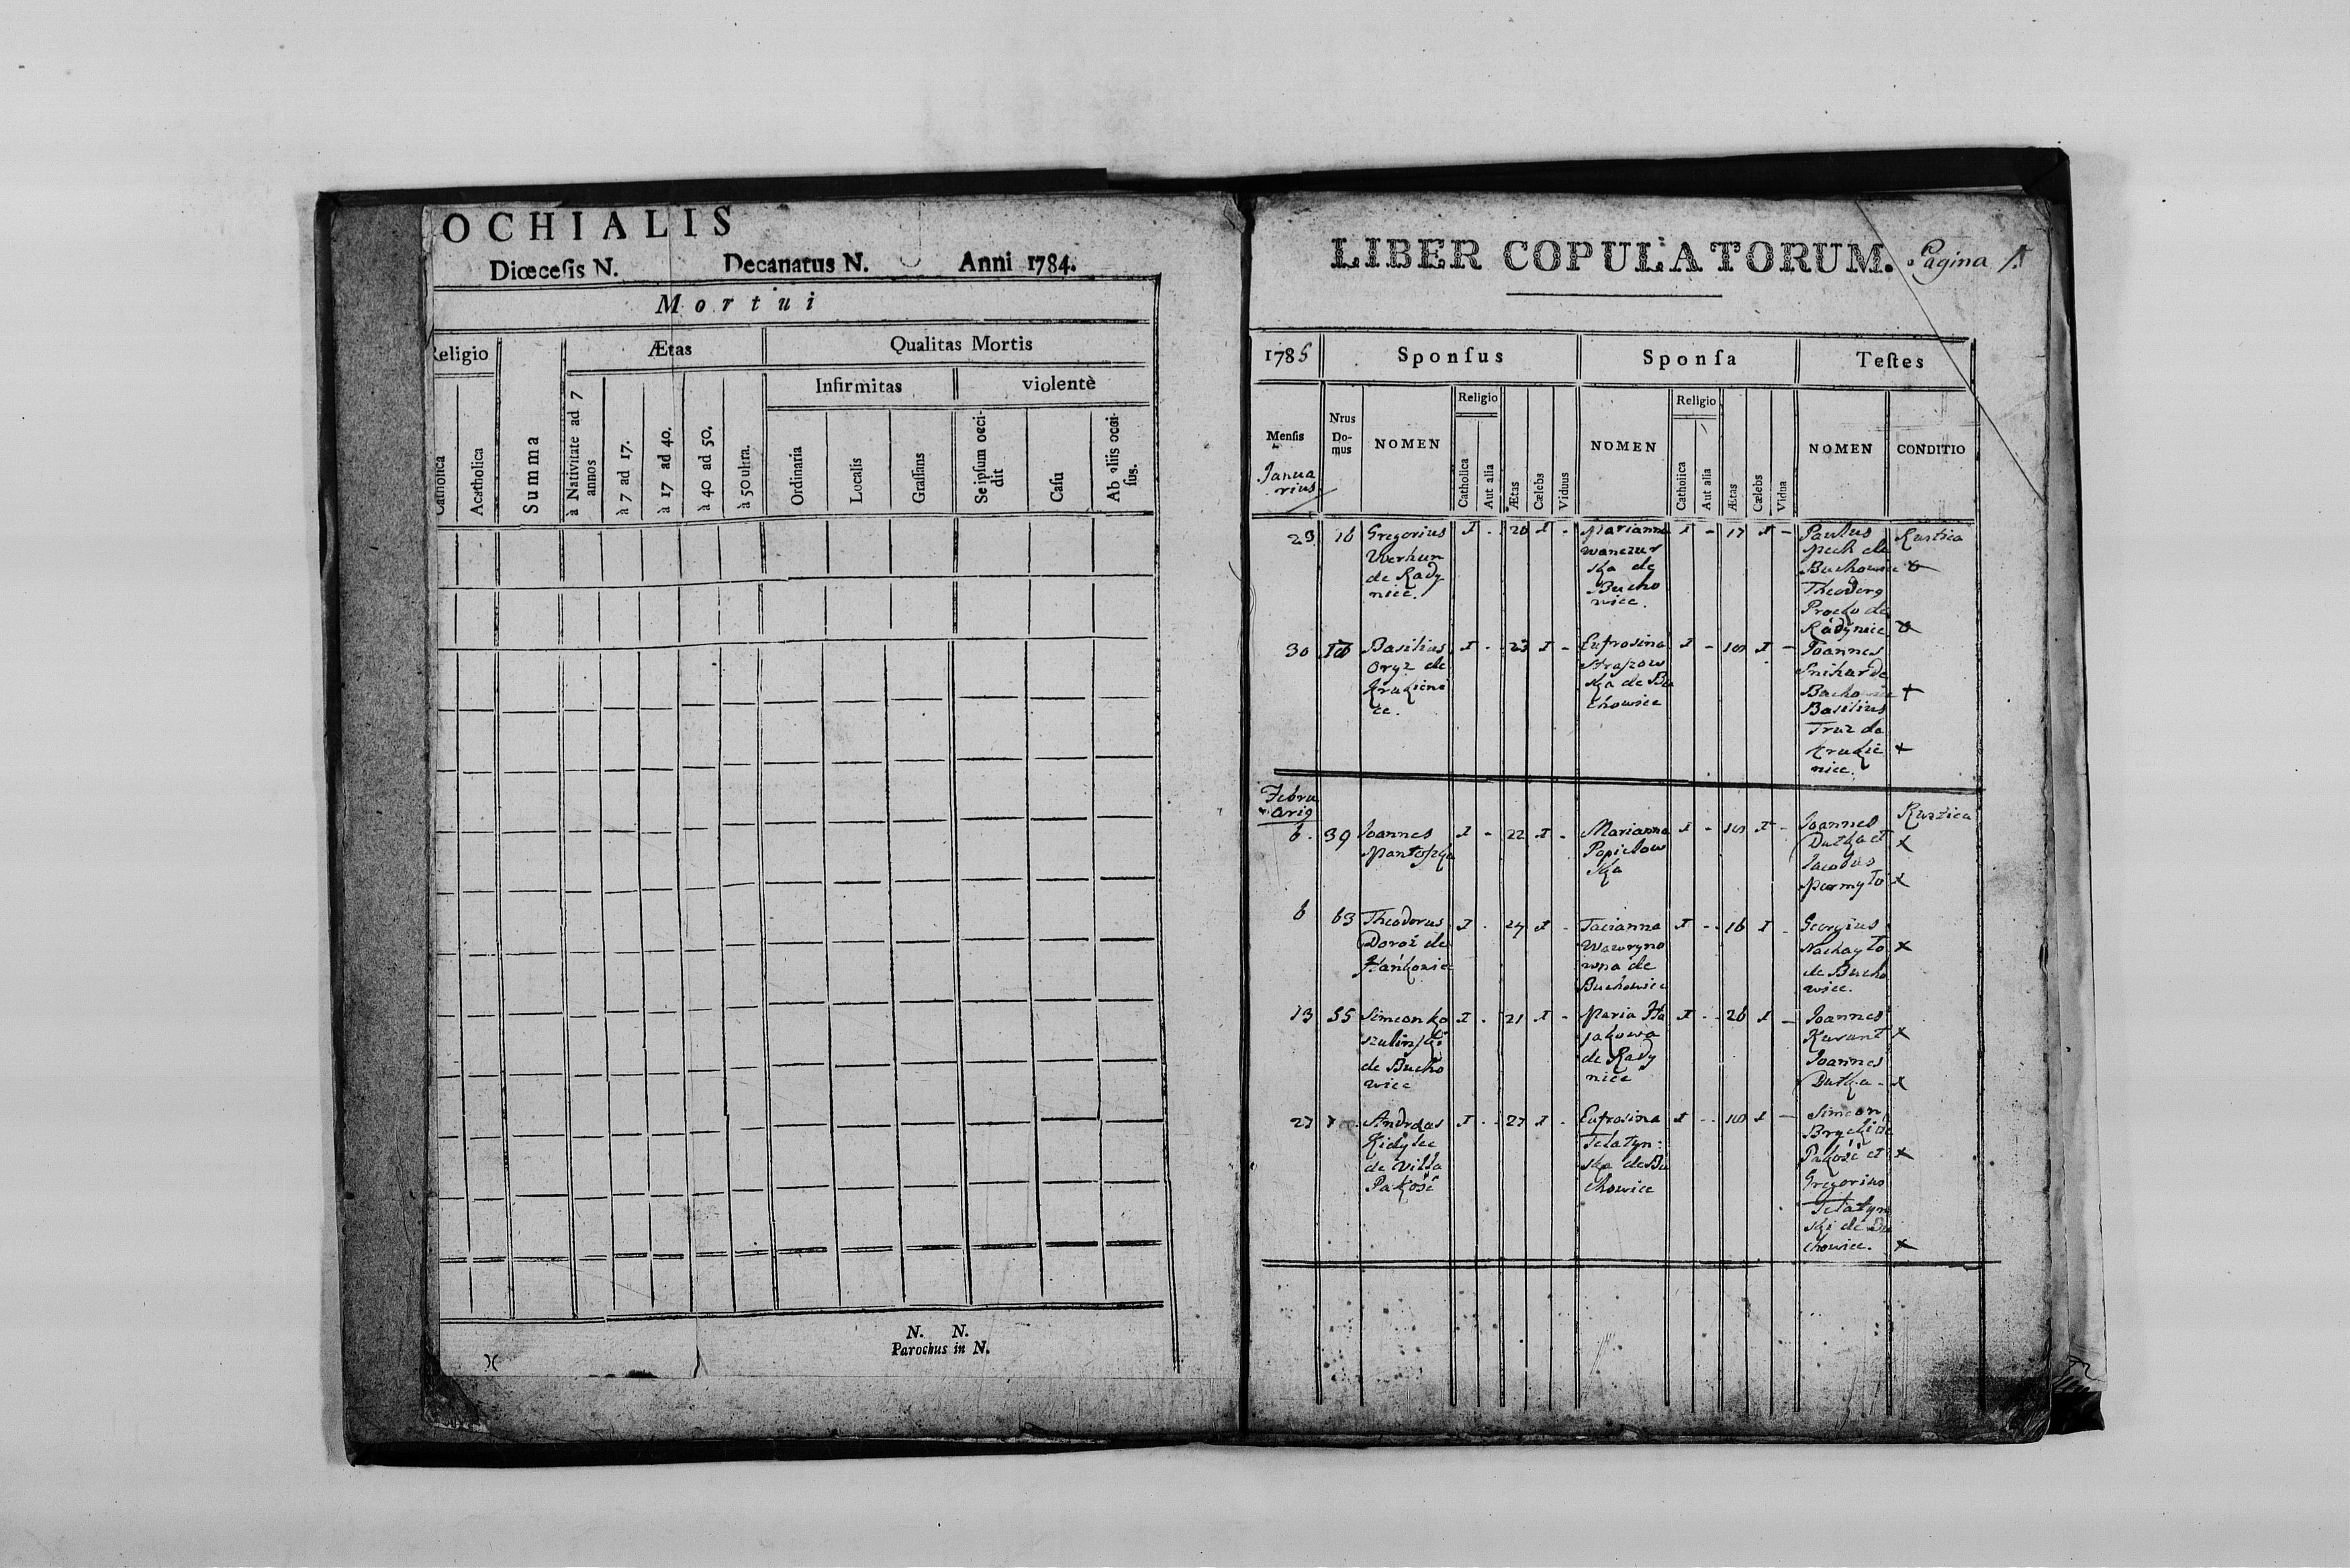 OCHIALIS
Diœceſis N. Decanatus N. Anni 1784.
Mortui
Religio
Ætas
Qualitas Mortis
Infirmitas
violentè
Catholica
Acatholica
Summa
à Nativitate ad 7 annos
à 7 ad 17.
à 17 ad 40.
à 40 ad 50.
à 50 ultra.
Ordinaria
Localis
Graſſans
Se ipſum occi-
dit
Caſu
Ab aliis occi-
ſus.
N. N.
Parochus in N.
LIBER COPULATORUM. Pagina 1.
1785
Sponſus
Sponſa
Teſtes
Menſis
Janua
rius
Nrus
Do-
mus
NOMEN
Religio
Catholica
Aut alia
Ætas
Cœlebs
Viduus
NOMEN
Religio
Catholica
Aut alia
Ætas
Cœlebs
Vidua
NOMEN
CONDITIO
29 16
Gregorius
Werhun
de Rady
nice.
Marianna
ska de
Bucho
wice.
17
Paulus
de
Buchowice
Theodorg
de
Radynice
Rustica
30
Basilius
Oryz de
Krukieni
ce.
23
Eufrosina
ska de Bu
chowice
Joannes
de
Buchowice
Basilius
de
Krukie
nice.
Febru
arig
6. 39
Joannes
22
Marianna
Popielow
ska
Joannes
Dutka et
Jacobus
Rustica
6 63
Theodorus
Doroż de
Hankowice
24
Tacianna
Wawryno
wna de
Buchowice
16
Georgius
de Bucho
wice.
13 35
Simeon Ko
szulinski
de Bucho
wice
21
Maria
de Rady
nice
26
Joannes
Kurant
Joannes
Dutka
27
Andreas
Kidylec
de Villa
Pakość
27
Eufrosina
Telatyn:
ska de Bu
chowice
Simeon
Pakość et
Gregorius
Telatyn
ski de Bu
chowice.